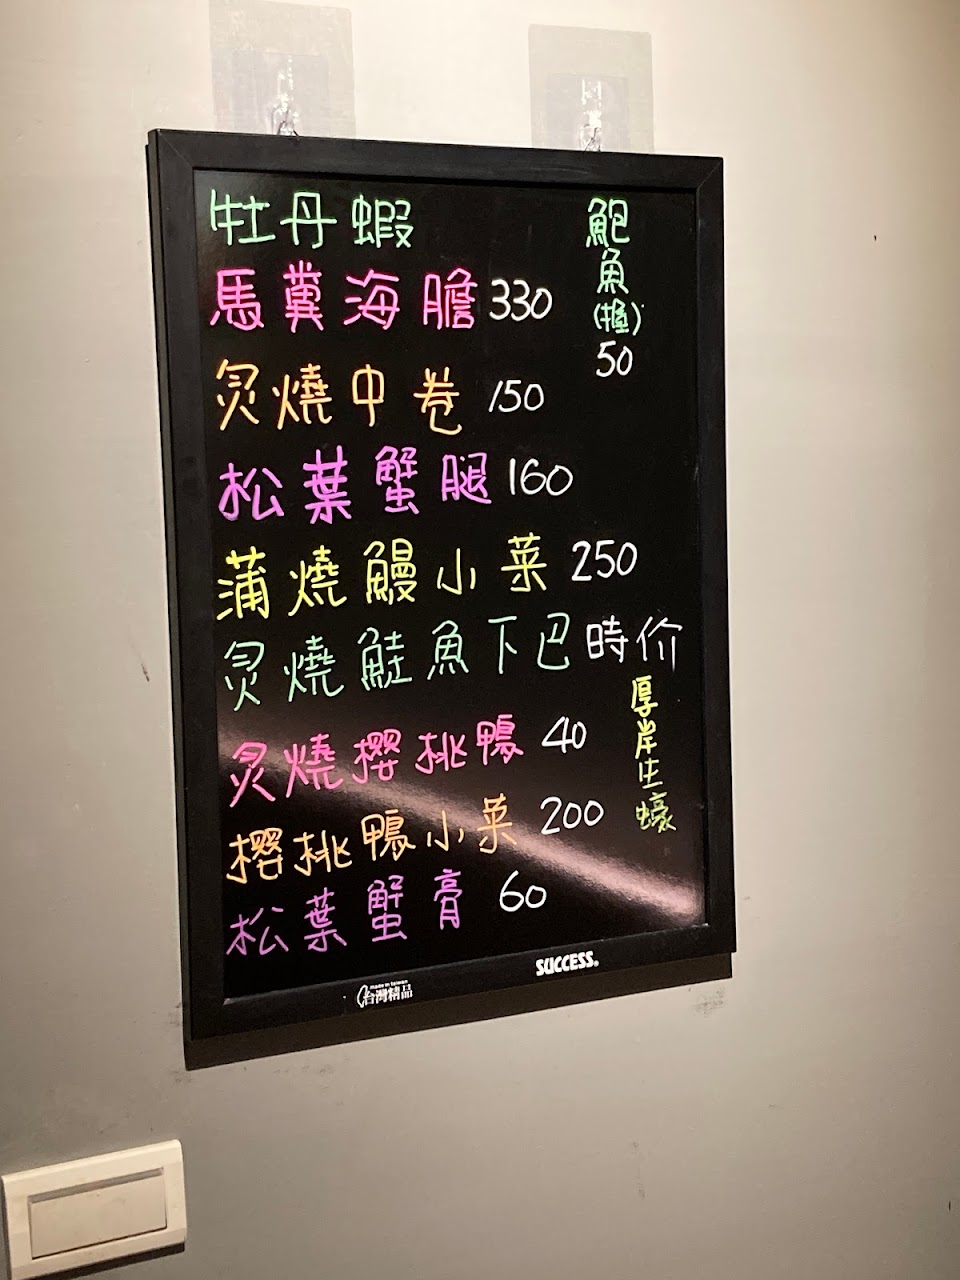 牡丹蝦
馬糞海膽 330
炙燒中卷 150
松葉蟹腿 160
蒲燒鰻小菜 250
炙燒鮭魚下巴 時价
炙燒櫻桃鴨 40
櫻桃鴨小菜 200
松葉蟹膏 60
鮑魚(握) 50
厚岸生蠔
made in taiwan
台灣精品
SUCCESS.